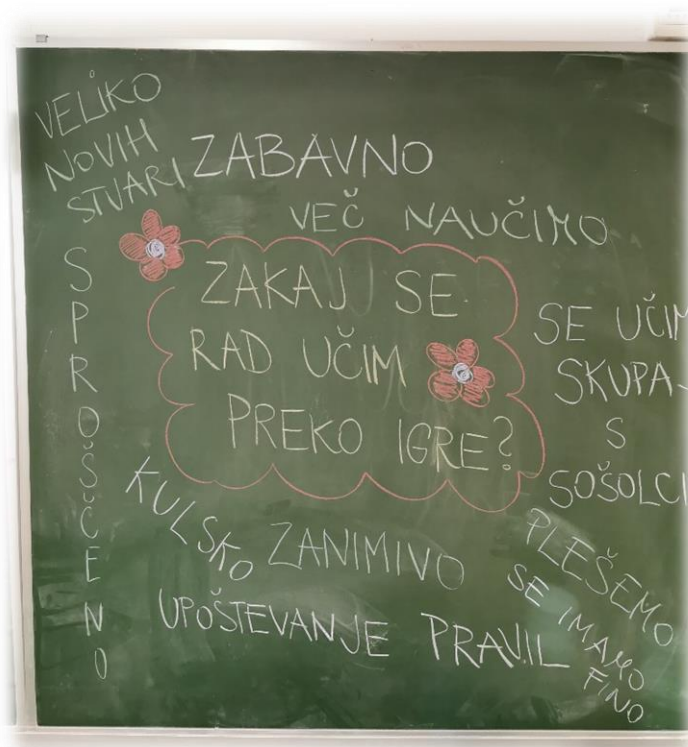 VELIKO
NOVIH
STVARI
ZABAVNO
VEČ NAUČIMO
ZAKAJ SE
RAD UČIM
PREKO IGRE?
SE UČIM
SKUPA-
S
SOŠOLCI
SPROŠČENO
KULSKO
ZANIMIVO
PLEŠEMO
SE IMAMO
FINO
UPOŠTEVANJE PRAVIL